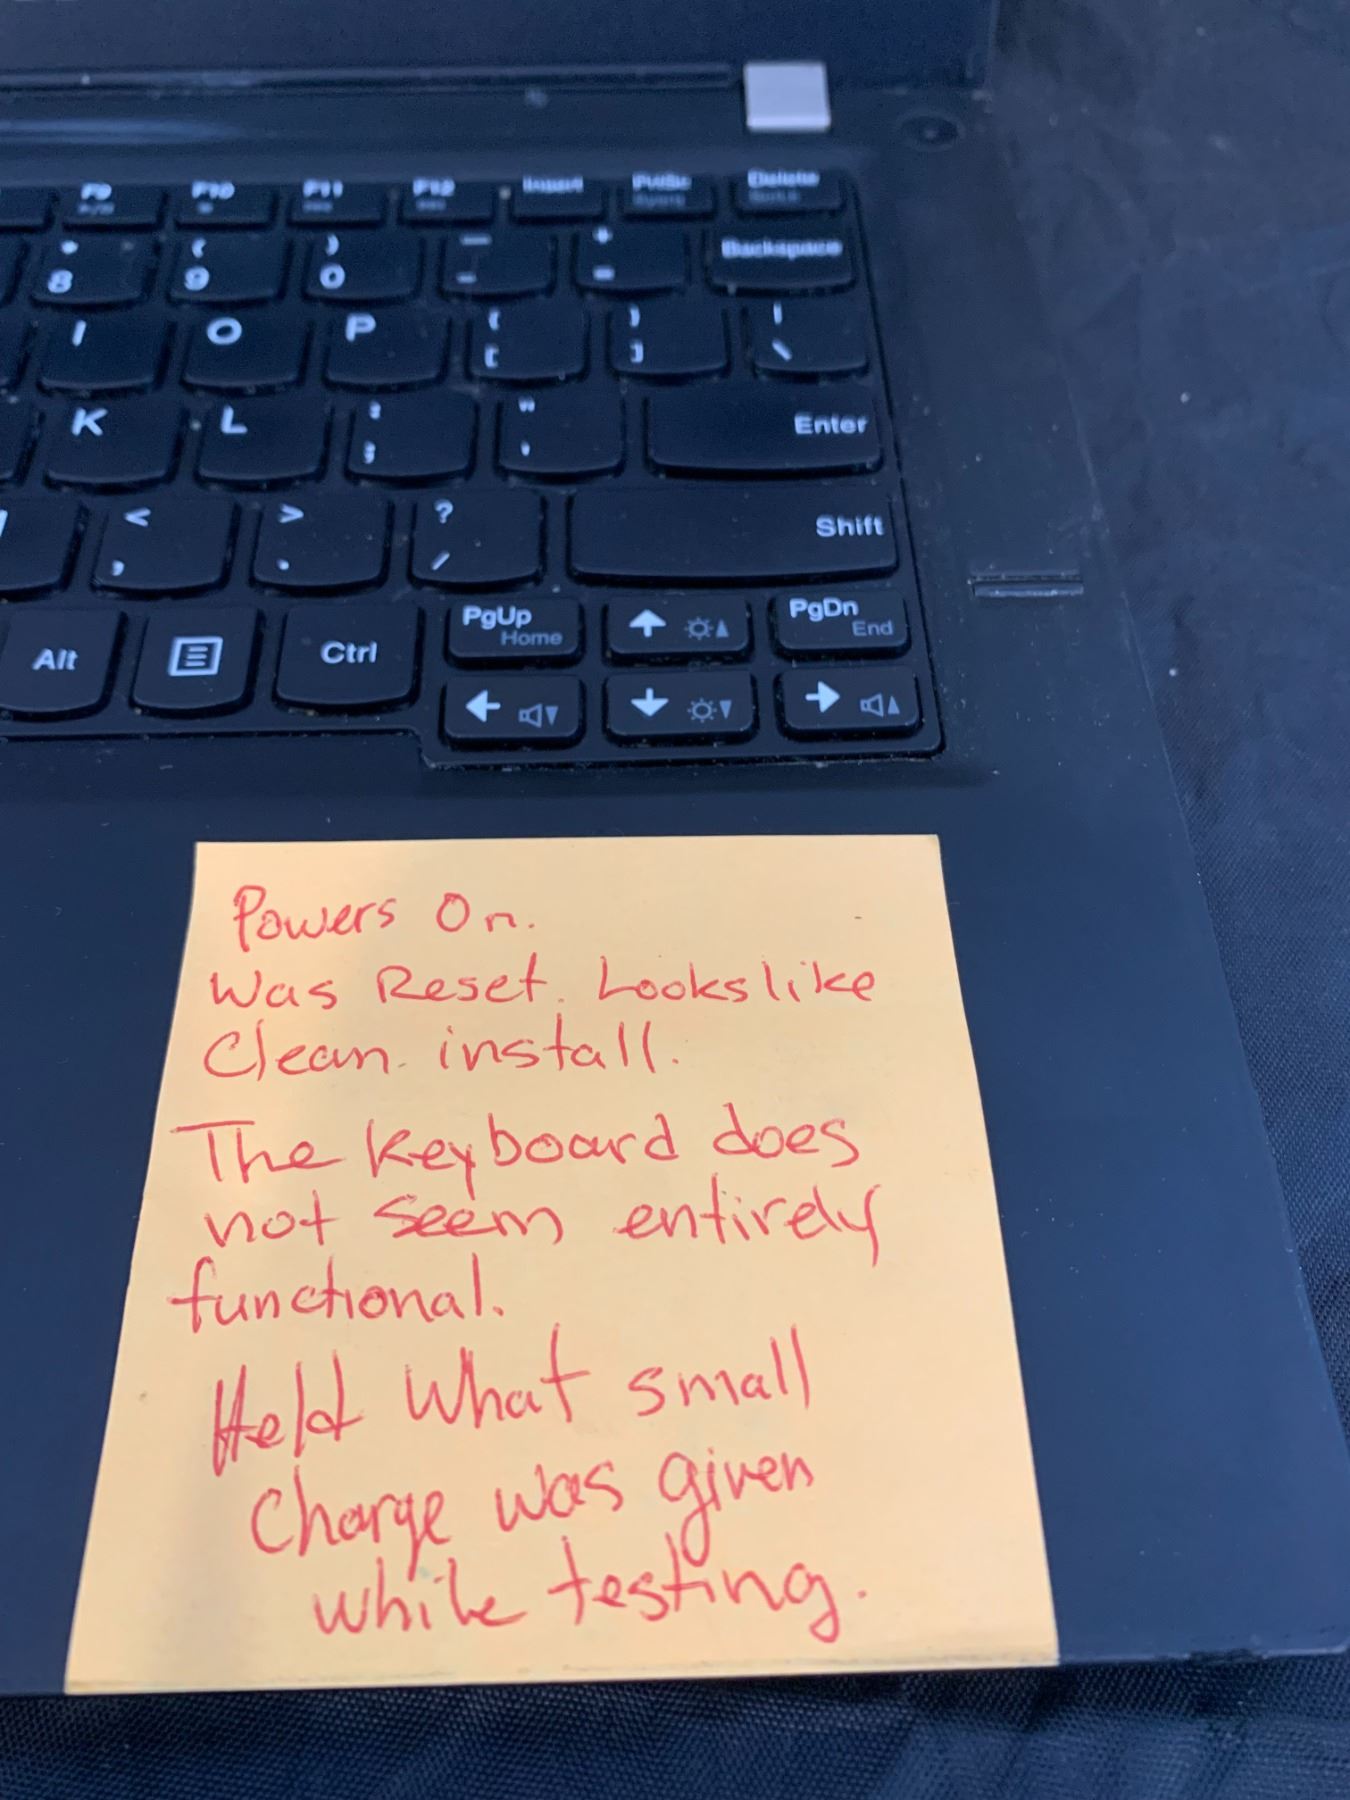 F9 F10 F11 F12 Insert PrtSc Delete
* ( ) — +
8 9 0 - = Backspace
I O P { } |
[ ] \
K L : " Enter
; '
< > ? Shift
, . /
Alt Ctrl PgUp Home PgDn End
Powers On.
Was Reset. Looks like
Clean install.
The Keyboard does
not seem entirely
functional.
Held What small
Charge was given
while testing.